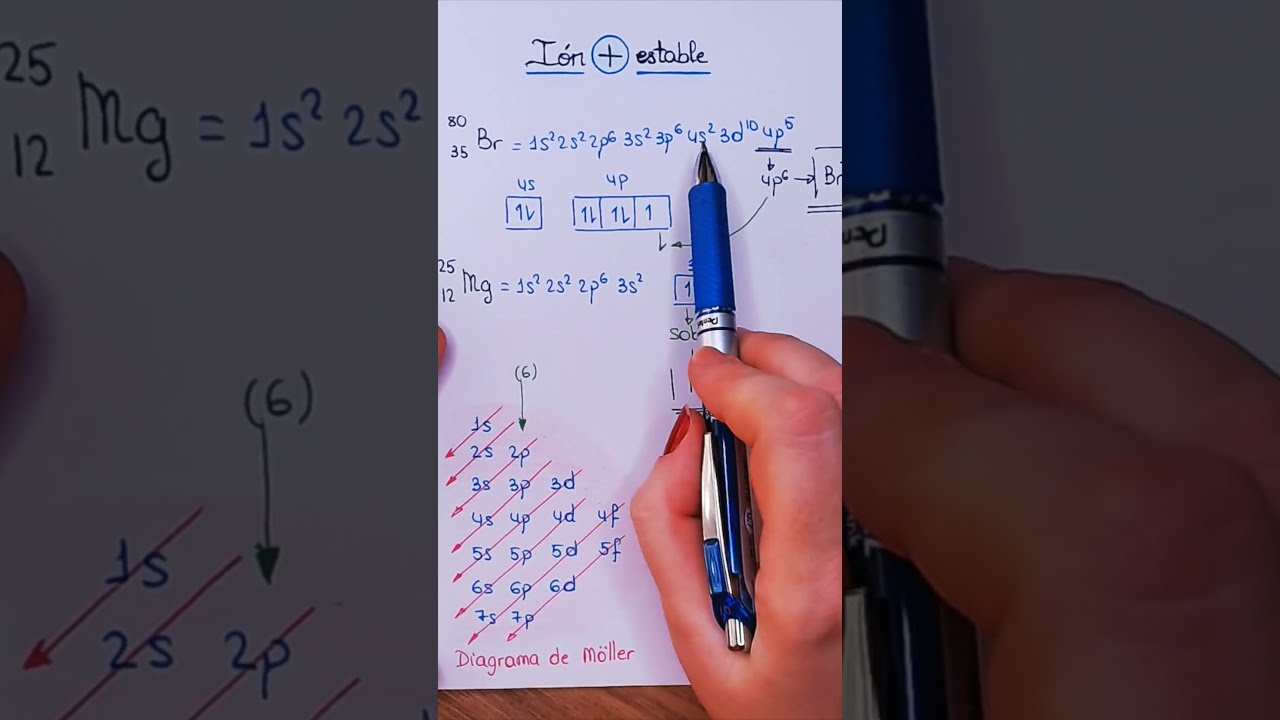 Ión + estable
80
35 Br = 1s² 2s² 2p⁶ 3s² 3p⁶ 4s² 3d¹⁰ 4p⁵
4p⁶ → Br
4s 4p
1⇂ 1⇂ 1⇂ 1
25
12 Mg = 1s² 2s² 2p⁶ 3s²
1
(6)
1s
2s 2p
3s 3p 3d
4s 4p 4d 4f
5s 5p 5d 5f
6s 6p 6d
7s 7p
Diagrama de Möller
25
12 Mg = 1s² 2s²
(6)
1s
2s 2p